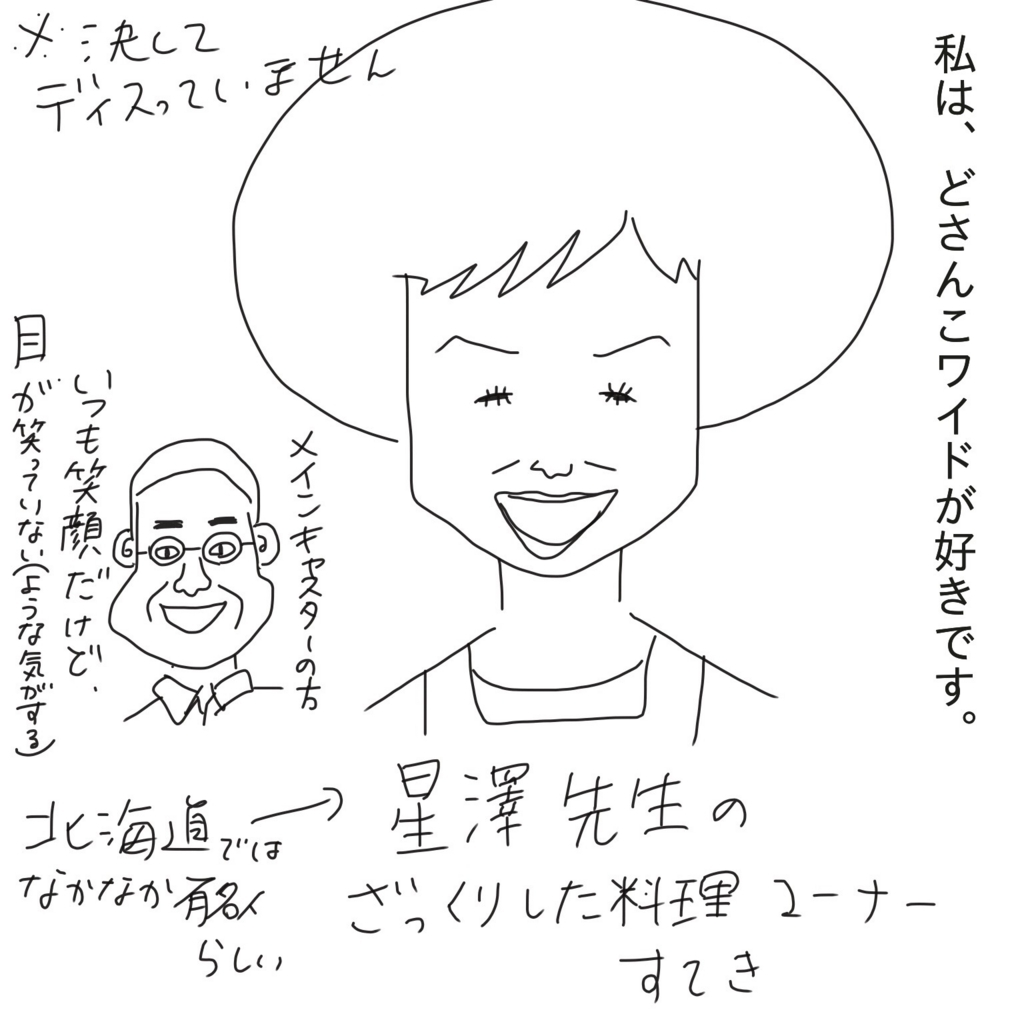 私は、どさんこワイドが好きです。
※決して
ディスっていません
メインキャスターの方
いつも笑顔だけど、
目が笑っていない(ような気がする)
星澤先生の
ざっくりした料理コーナー
すてき
北海道では
なかなか有名人
らしい